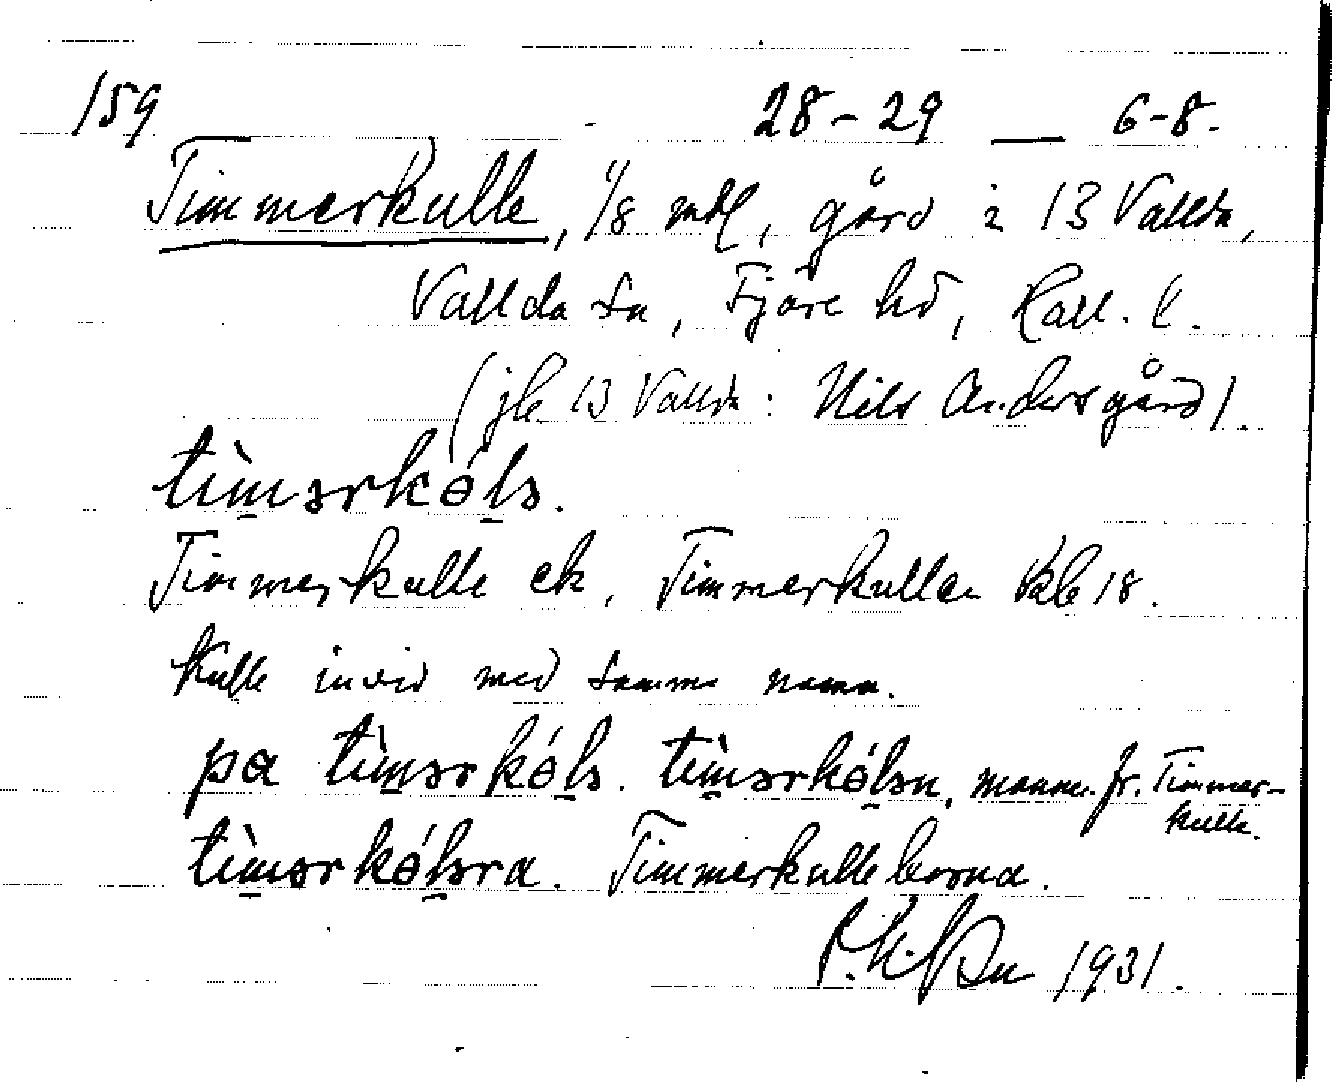 159 28-29 — 6-8.
Timmerkulle, 1/8 mtl, gård i 13 Vallda,
Vallda sn, Fjäre hd, Hall. l.
(jb 13 Vallda: Nils Andersgård).
tìmərkǿlə.
Timmerkulle ek, Timmerkullen kbl 18.
Kulle invid med samma namn.
pa tìmərkǿlə. tìmərkǿlən, mannen fr. Timmer-
kulle.
tìmərkǿləra. Timmerkulleborna.
1931.